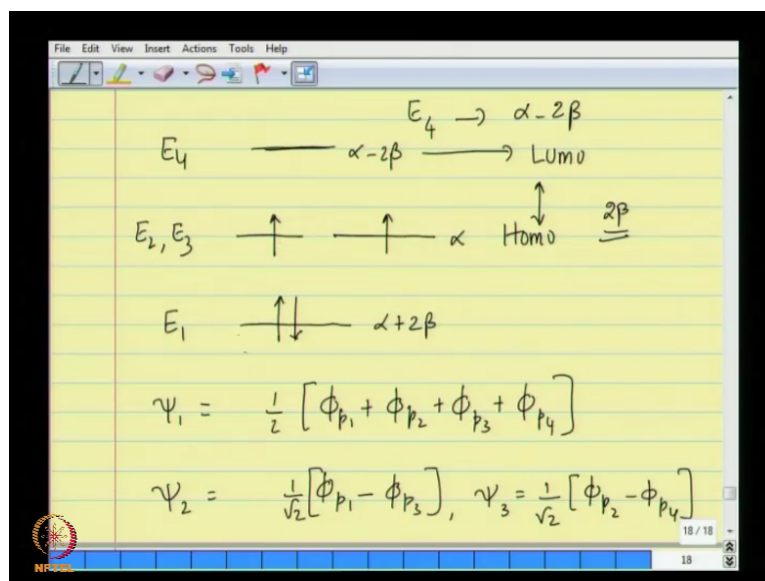 File Edit View Insert Actions Tools Help
E₄ → α - 2β
E₄ α - 2β → Lumo
E₂, E₃ α Homo 2β
E₁ α + 2β
Ψ₁ = 1/2 [ϕ_p₁ + ϕ_p₂ + ϕ_p₃ + ϕ_p₄]
Ψ₂ = 1/√2 [ϕ_p₁ - ϕ_p₃], Ψ₃ = 1/√2 [ϕ_p₂ - ϕ_p₄]
18 / 18
18
NPTEL